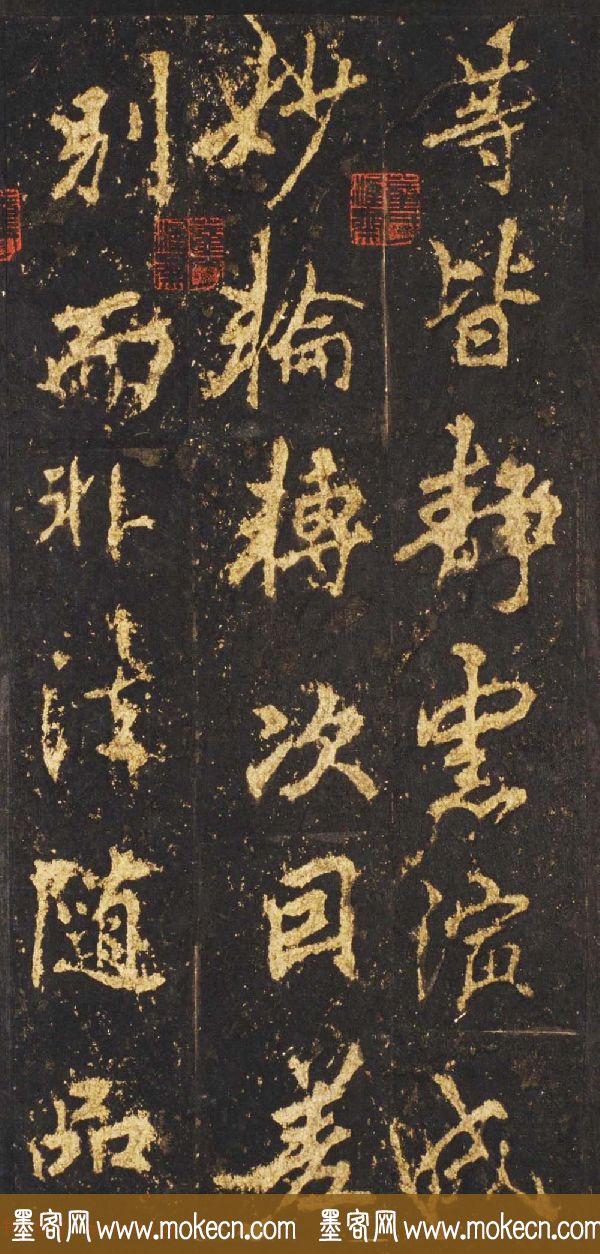 等皆静慮演成
妙輪轉次因差
別而非法隨品
墨客网 www.mokecn.com 墨客网 www.mokecn.com